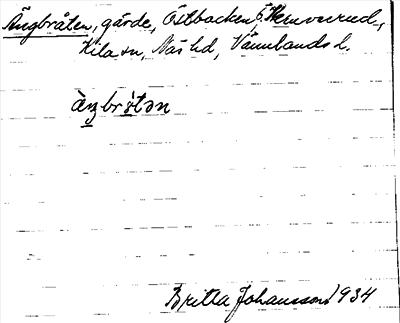 Ängbråten, gärde, Östbacken, Ö. Hemverud,
Kila sn, Näs hd, Värmlands l.
àŋbrɷ̀tən
Britta Johansson 1934